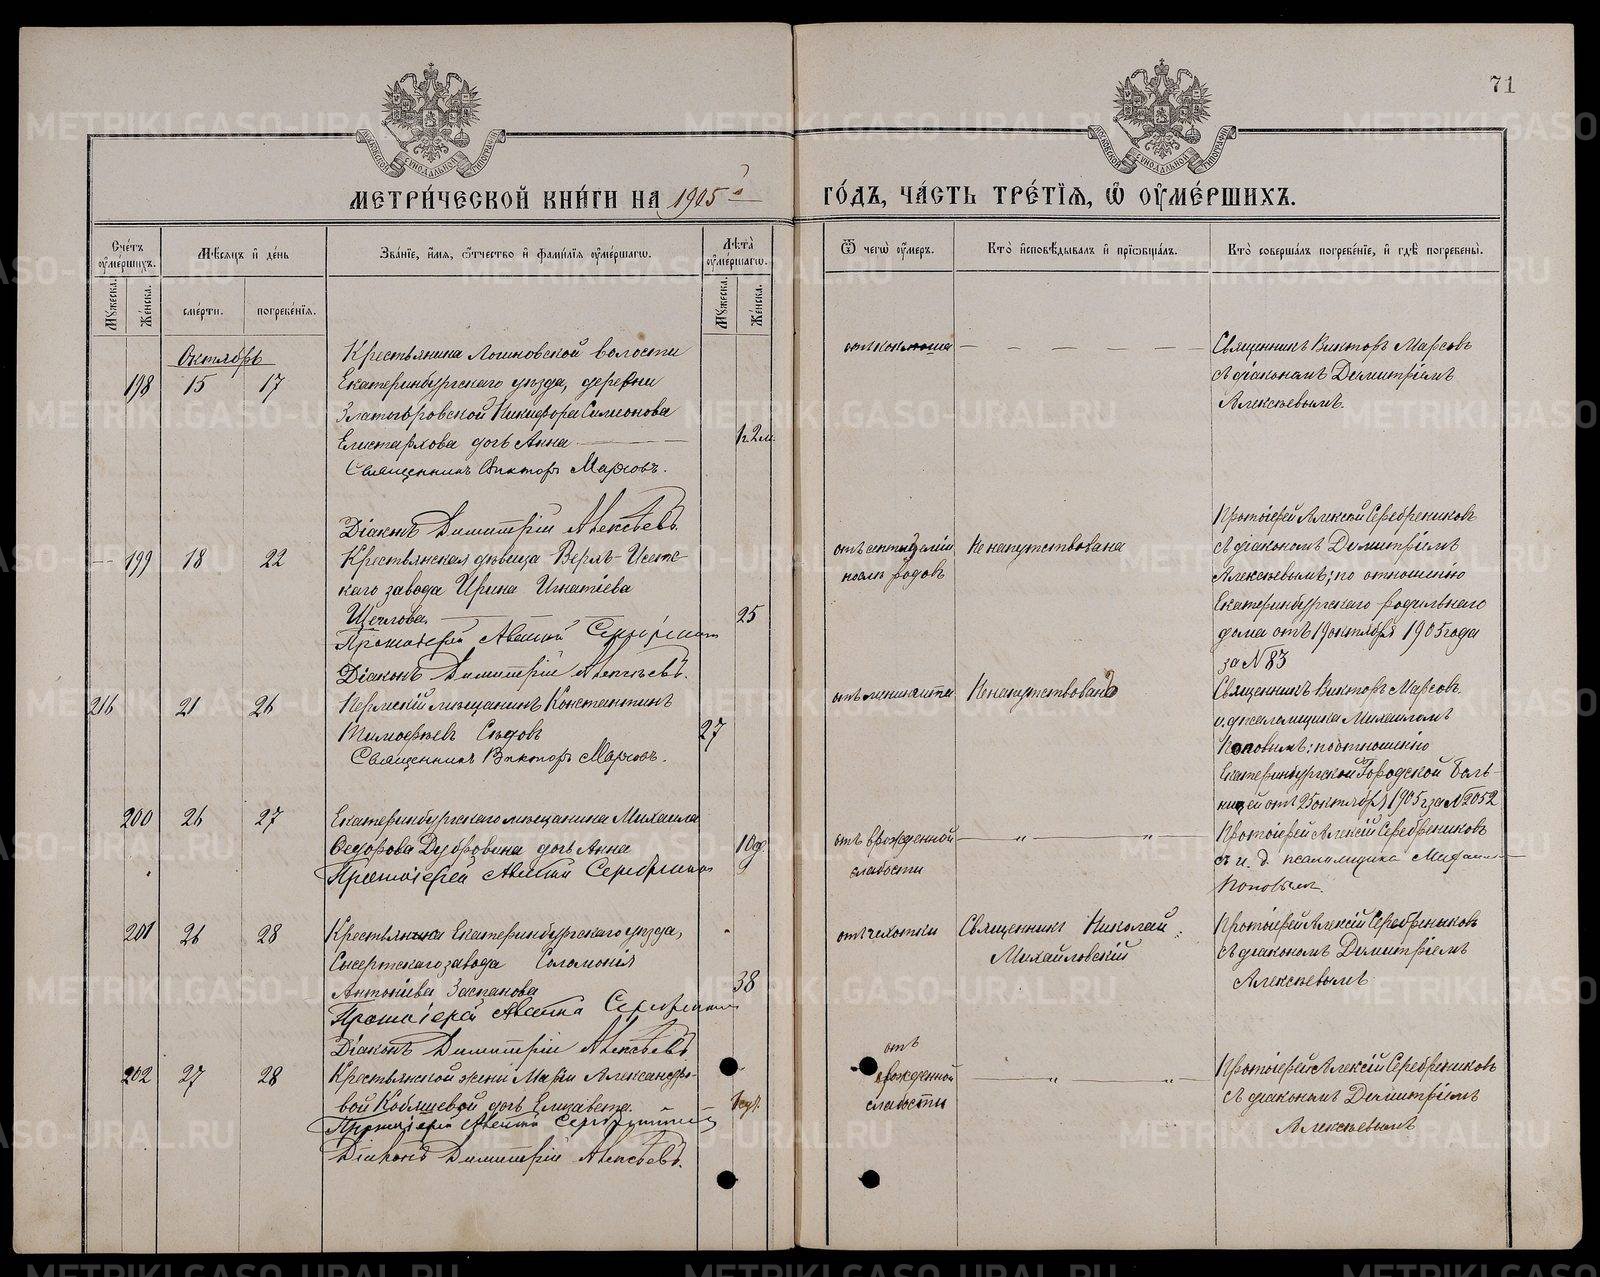 71
МЕТРИ́ЧЕСКОЙ КНИ́ГИ НА 1905 ГО́ДЪ, ЧА́СТЬ ТРЕ́ТІѦ, Ѡ҃ ОУМЕ́РШИХЪ.
Сче́тъ оуме́ршихъ.
Мѣ́сяцъ и де́нь
Зва́ніе, и́мя, ѻ́тчество и фами́лія оуме́ршагѡ.
Лѣ́та оуме́ршагѡ.
Ѿ чегѡ̀ оу́меръ.
Кто̀ исповѣ́дывалъ и пріѡбща́лъ.
Кто̀ соверша́лъ погребе́ніе, и гдѣ̀ погребены̀.
Мꙋ́жеска.
Же́нска.
сме́рти.
погребе́нія.
Мꙋ́жеска.
Же́нска.
Октябрь
198 15 17
Крестьянина Логиновской волости
Екатеринбургскаго уѣзда, деревни
Златогоровской Никифора Симеонова
Елистархова дочь Анна
1г. 2м.
Священникъ Викторъ Марсовъ.
Діаконъ Димитрій Алексѣевъ.
отъ коклюша
Священникъ Викторъ Марсовъ
съ діакономъ Димитріемъ
Алексѣевымъ.
199 18 22
Крестьянская дѣвица Верхъ-Исетс-
каго завода Ирина Игнатіева
Щеглова.
25
Протоіерей Алексій Серебрениковъ
Діаконъ Димитрій Алексѣевъ.
послѣ родовъ
Не напутствована
Протоіерей Алексій Серебрениковъ
съ діакономъ Димитріемъ
Алексѣевымъ; по отношенію
Екатеринбургскаго родильнаго
дома отъ 19 октября 1905 года
за № 83
216 21 26
Пермскій мѣщанинъ Константинъ
Тимофѣевъ Сѣдовъ
27
Священникъ Викторъ Марсовъ.
отъ менингита
Не напутствованъ
Священникъ Викторъ Марсовъ
и. д. псаломщика Михаиломъ
Поповымъ: по отношенію
Екатеринбургской Городской Боль-
ницей отъ 25 октября 1905 г за № 2052
200 26 27
Екатеринбургскаго мѣщанина Михаила
Ѳедорова Дубровина дочь Анна
Протоіерей Алексій Серебрениковъ
отъ врожденной
слабости
Протоіерей Алексій Серебрениковъ
съ и. д. псаломщика Михаиломъ
Поповымъ.
201 26 28
Крестьянка Екатеринбургскаго уѣзда,
Сысертскаго завода Соломонія
Антоніева Заспанова
38
Протоіерей Алексій Серебрениковъ
Діаконъ Димитрій Алексѣевъ
отъ чахотки
Священникъ Николай
Михайловскій
Протоіерей Алексій Серебрениковъ
съ діакономъ Димитріемъ
Алексѣевымъ
202 27 28
Крестьянской жены Маріи Александро-
вой Кобяшевой дочь Елизавета.
Протоіерей Алексій Серебрениковъ
Діаконъ Димитрій Алексѣевъ.
отъ
врожденной
слабости
Протоіерей Алексій Серебрениковъ
съ діакономъ Димитріемъ
Алексѣевымъ
METRIKI.GASO-URAL.RU